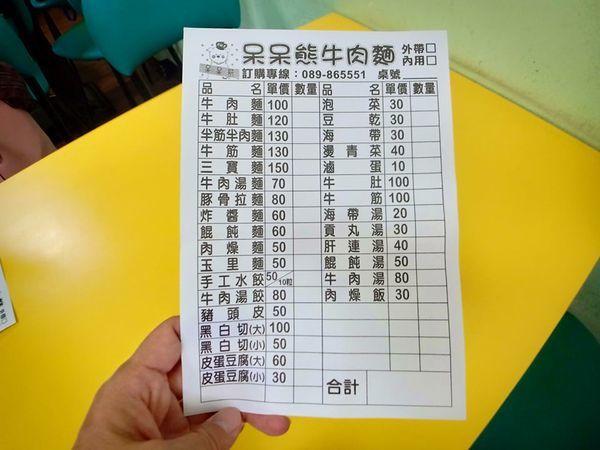 呆呆熊牛肉麵 外帶□
內用□
訂購專線：089-865551 桌號
品名 單價 數量 品名 單價 數量
牛肉麵 100 泡菜 30
牛肚麵 120 豆乾 30
半筋半肉麵 130 海帶 30
牛筋麵 130 燙青菜 40
三寶麵 150 滷蛋 10
牛肉湯麵 70 牛肚 100
豚骨拉麵 80 牛筋 100
炸醬麵 60 海帶湯 20
餛飩麵 60 貢丸湯 30
肉燥麵 50 肝連湯 40
玉里麵 50 餛飩湯 50
手工水餃 50/10粒 牛肉湯 80
牛肉湯餃 80 肉燥飯 30
豬頭皮 50
黑白切(大) 100
黑白切(小) 50
皮蛋豆腐(大) 60
皮蛋豆腐(小) 30 合計